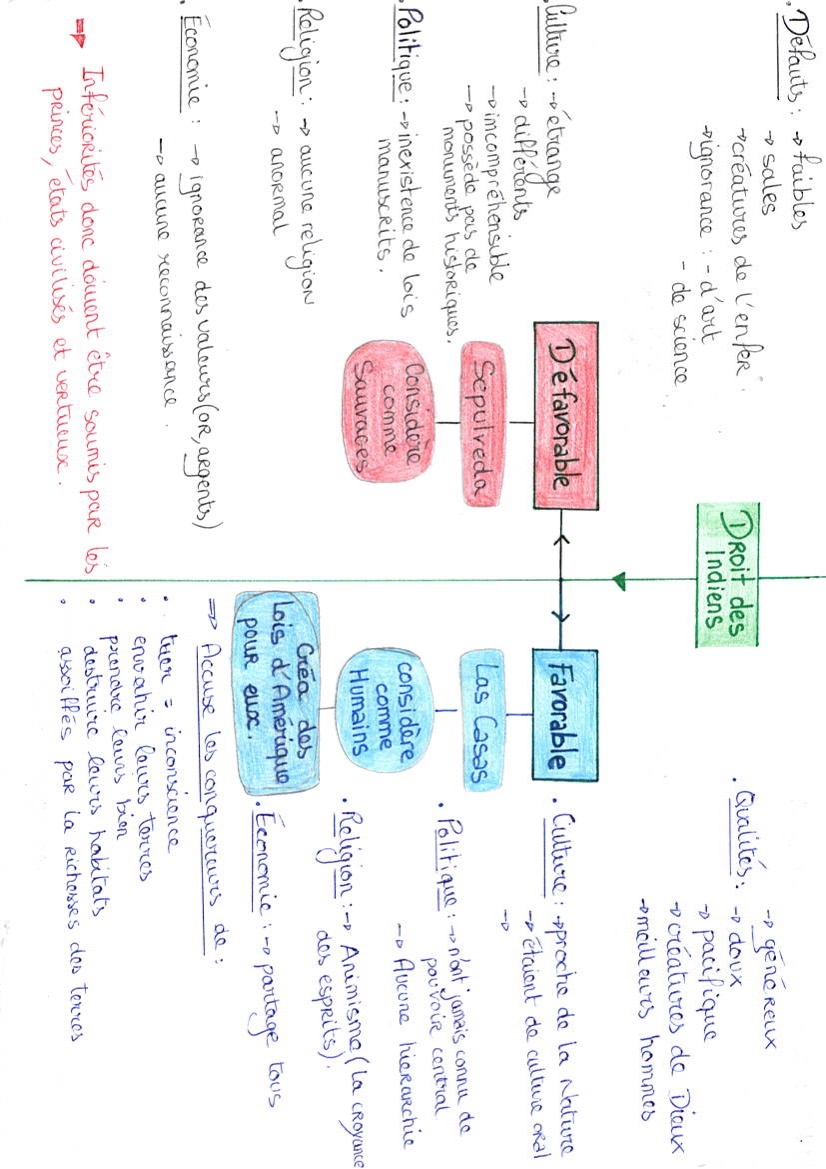 Droit des
Indiens
Défavorable
Sepulveda
Considère
comme
Sauvages
. Défauts : → faibles
→ sales
→ créatures de l'enfer
→ ignorance : - d'art
- de science
. Culture : → étrange
→ différents
→ imcompréhensible
→ possède pas de
monuments historiques.
. Politique : → inexistence de lois
manuscrits.
. Religion : → aucune religion
→ anormal
. Économie : → ignorance des valeurs (or, argents)
→ aucune reconnaissance.
⇒ Infériorités donc doivent être soumis par les
princes, états civilisés et vertueux.
Favorable
Las Casas
considère
comme
Humains
Créa des
Lois d'Amérique
pour eux.
. Qualités : → généreux
→ doux
→ pacifique
→ créatures de Dieux
→ meilleurs hommes
. Culture : → proche de la Nature
→ étaient de culture oral
→
. Politique : → n'ont jamais connu de
pouvoir central
→ Aucune hierarchie
. Religion : → Animisme (la croyance
des esprits).
. Économie : → partage tous
⇒ Accuse les conquereurs de :
. tuer = inconscience
. envahir leurs terres
. prendre leurs bien
. destruire leurs habitats
. assoiffés par la richesses des terres